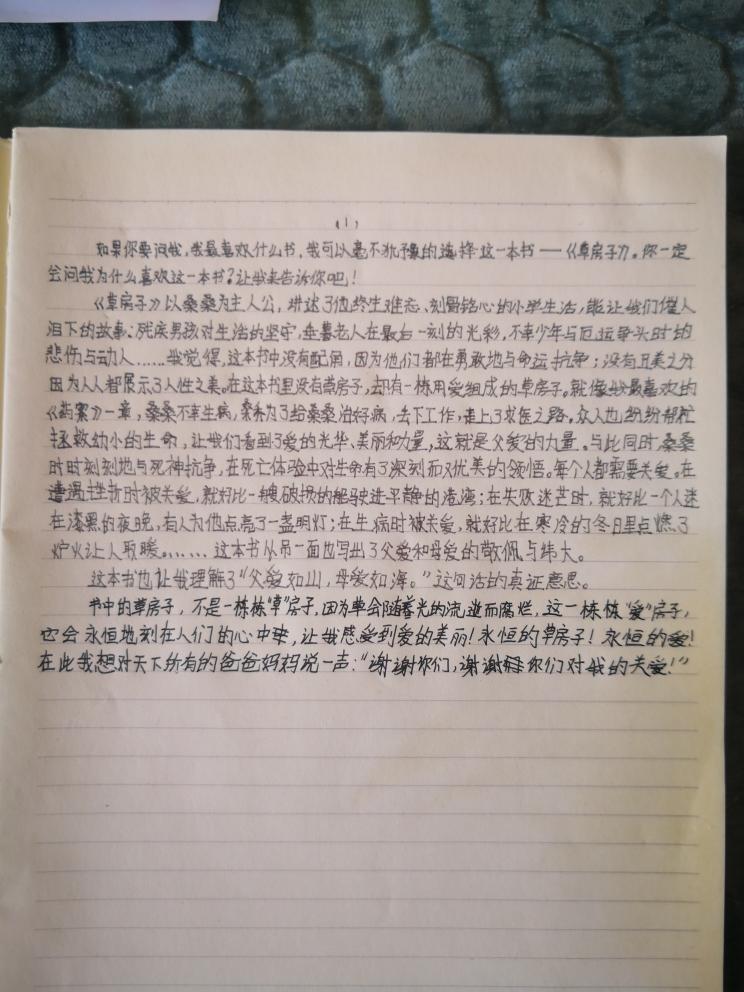 (1)
如果你要问我,我最喜欢什么书,我可以毫不犹豫的选择这一本书——《草房子》。你一定
会问我为什么喜欢这一本书?让我来告诉你吧!
《草房子》以桑桑为主人公,讲述了他终生难忘、刻骨铭心的小学生活,能让我们催人
泪下的故事:残疾男孩对生活的坚守,垂暮老人在最后一刻的光彩,不幸少年与厄运争头时的
悲伤与动人……我觉得,这本书中没有配角,因为他们都在勇敢地与命运抗争;没有丑美之分
因为人人都展示了人性之美。在这本书里没有草房子,却有一栋用爱组成的草房子。就像我最喜欢的
《药寮》一章,桑桑不幸生病,桑乔为了给桑桑治好病,去下工作,走上了求医之路。众人也纷纷帮忙
拯救幼小的生命,让我们看到了爱的光华、美丽和力量,这就是父爱的力量。与此同时,桑桑
时时刻刻地与死神抗争,在死亡体验中对生命有了深刻而优美的领悟。每个人都需要关爱。在
遭遇挫折时被关爱,就好比一艘破损的船驶进平静的港湾;在失败迷茫时,就好比一个人迷
在漆黑的夜晚,有人为他点亮了一盏明灯;在生病时被关爱,就好比在寒冷的冬日里点燃了
炉火让人取暖。……这本书从另一面也写出了父爱和母爱的敬佩与纬大。
这本书也让我理解了“父爱如山,母爱如海。”这句话的真证意思。
书中的草房子,不是一栋栋“草”房子,因为草会随着光的流逝而腐烂,这一栋栋“爱”房子,
它会永恒地刻在人们的心中,让我感受到爱的美丽!永恒的草房子!永恒的爱!
在此我想对天下所有的爸爸妈妈说一声:“谢谢你们,谢谢你们对我的关爱!”